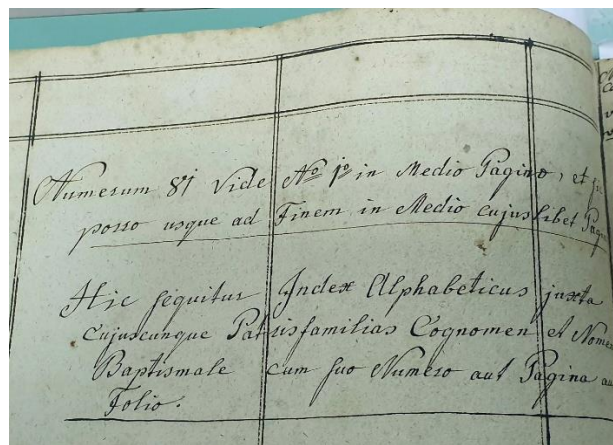 Numerum 81 Vide No 1o in Medio Pagino, et
porro usque ad Finem in Medio cujuslibet
Hic sequitur Index Alphabeticus juxta
cujuscunque Patrisfamilias Cognomen et
Baptismale cum suo Numero aut Pagina
Folio.